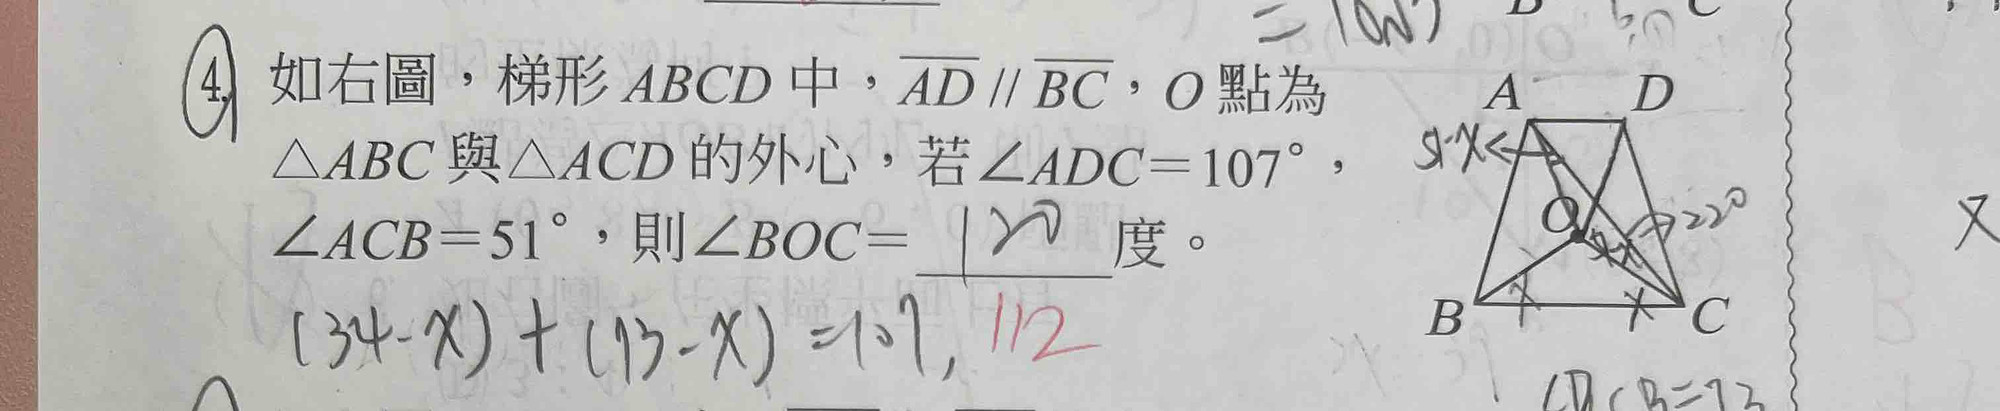 4. 如右圖，梯形 ABCD 中，AD // BC，O 點為
△ABC 與△ACD 的外心，若∠ADC＝107°，
∠ACB＝51°，則∠BOC＝ 120 度。
(34-x)+(73-x)=107, 112
A D
51-x
O
22°
B x x C
x